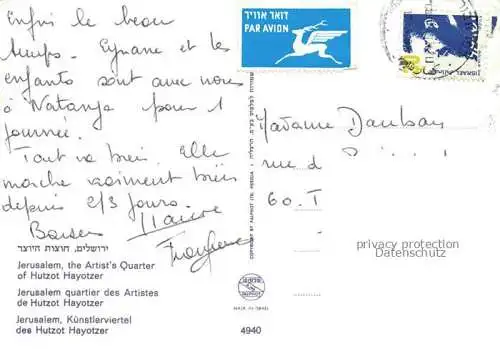 Enfin le beau
temps. Eynane et les
enfants sont avec nous
à Natanya pour 1
journée.
Tout va bien. Elle
marche vraiment bien
depuis 2/3 jours.
Baisers
ירושלים, חוצות היוצר
Jerusalem, the Artist's Quarter
of Hutzot Hayotzer
Jerusalem quartier des Artistes
de Hutzot Hayotzer
Jerusalem, Künstlerviertel
des Hutzot Hayotzer
דואר אוויר
PAR AVION
ISRAEL
Madame
rue d
60.
privacy protection
Datenschutz
PALPHOT
MADE IN ISRAEL
4940